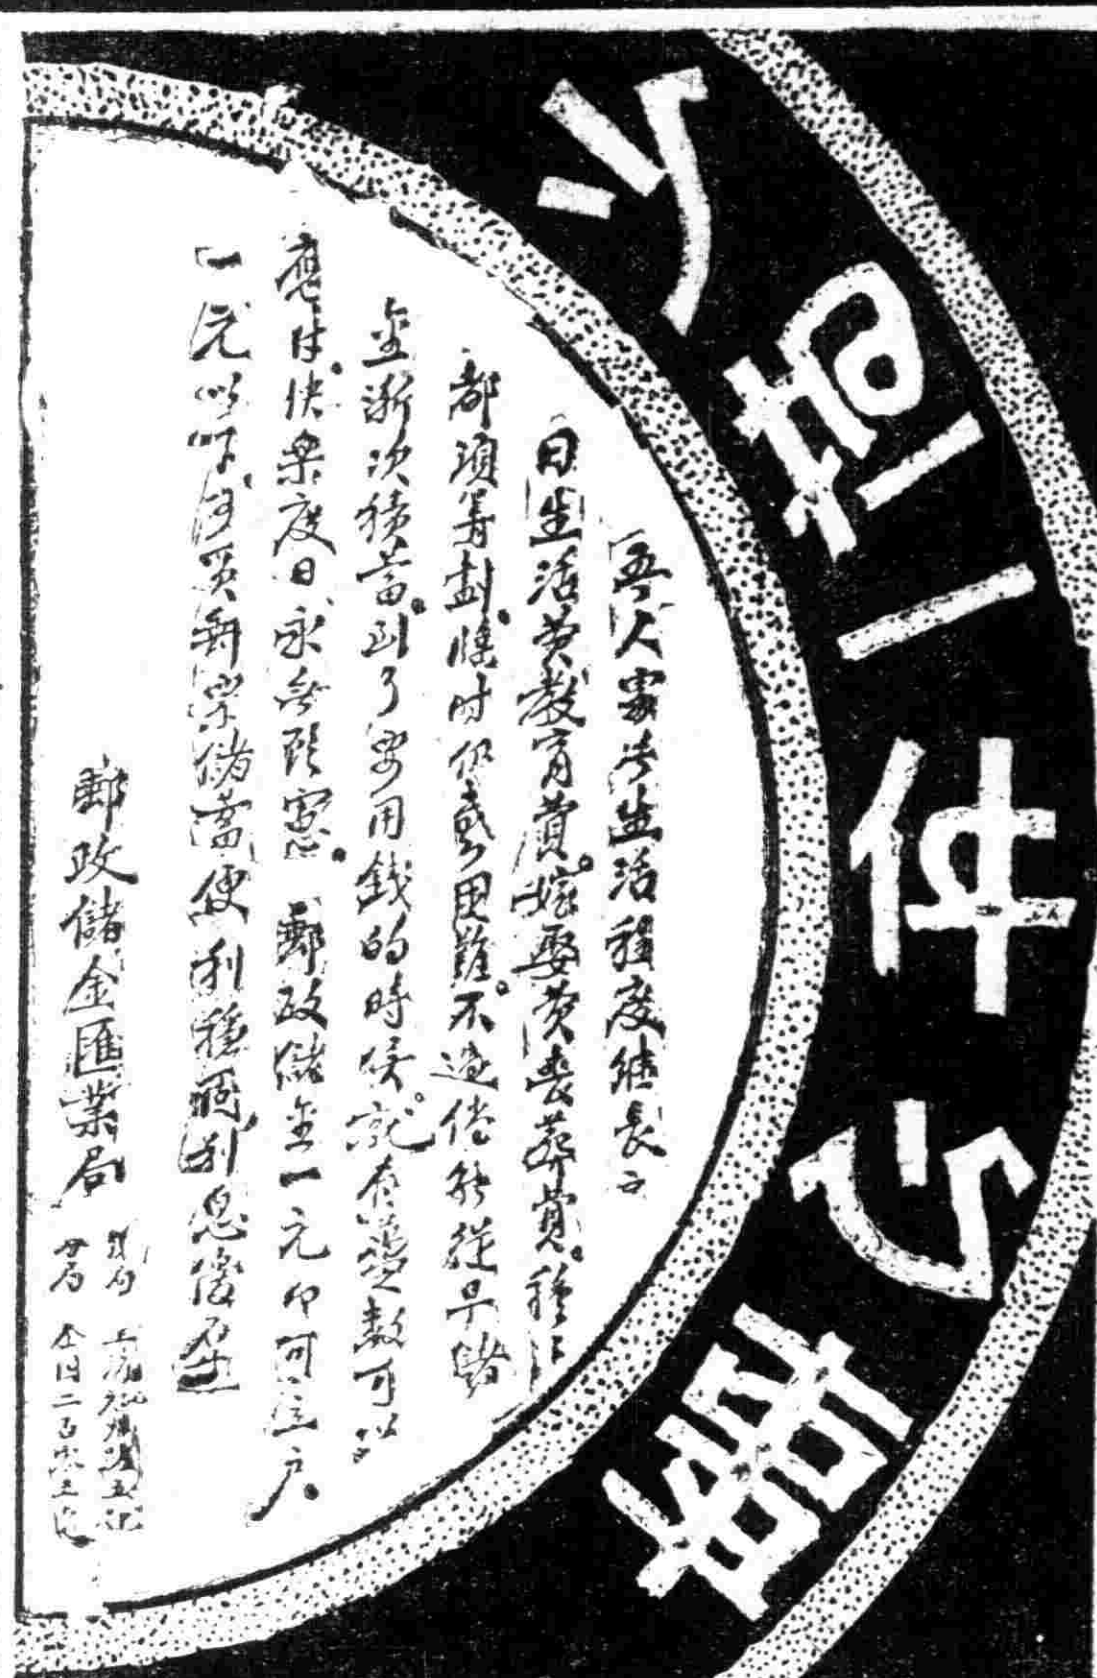 少担一件心事
吾人家生活程度继長
日生活費教育費。嫁娶費喪葬費。種種
都須籌劃。臨時仍感困難。不過倘能從早儲
金漸次積蓄。到了要用錢的時候。就有整數可以
應付。快樂度日。永無顧慮。郵政儲金一元即可立户。
一元以下。可買郵票儲蓄。便利穩固。利息優厚
郵政儲金匯業局
總局 上海
分局 全国二百